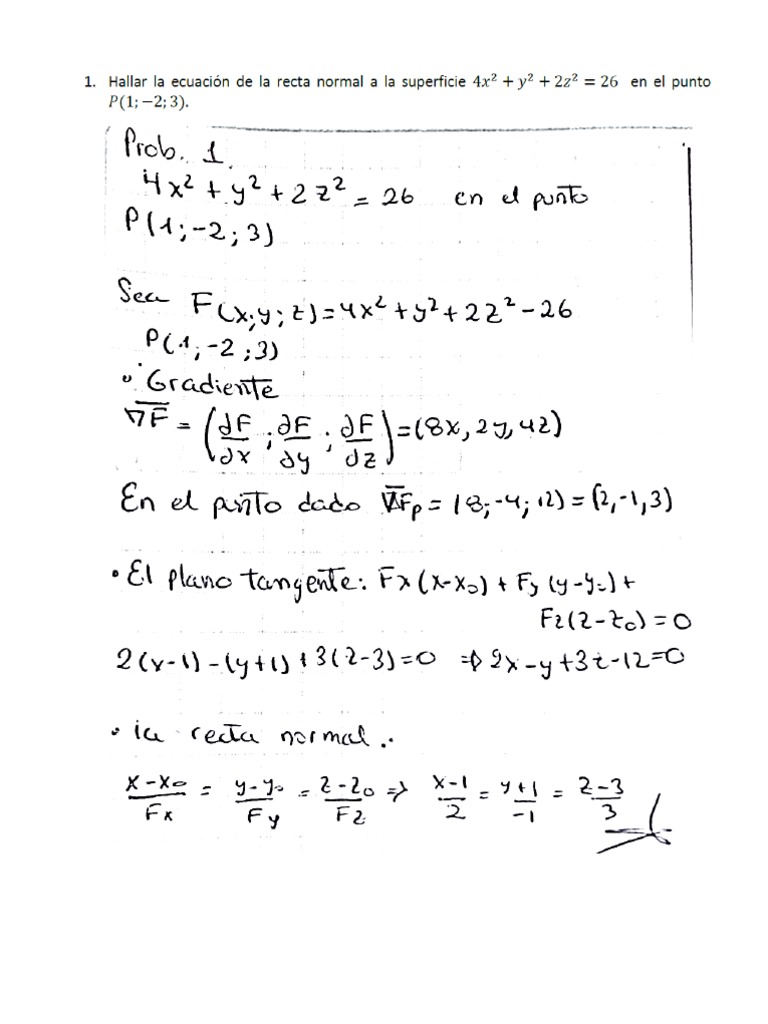 1. Hallar la ecuación de la recta normal a la superficie 4x² + y² + 2z² = 26 en el punto
P(1; −2; 3).
Prob. 1.
4x² + y² + 2z² = 26 en el punto
P(1; -2; 3)
Sea F(x; y; z) = 4x² + y² + 2z² - 26
P(1; -2; 3)
• Gradiente
∇F = (∂F/∂x ; ∂F/∂y ; ∂F/∂z) = (8x, 2y, 4z)
En el punto dado ∇Fp = (8; -4; 12) = (2, -1, 3)
• El plano tangente: Fx(x-x₀) + Fy(y-y₀) +
Fz(z-z₀) = 0
2(x-1) - (y+1) + 3(z-3) = 0 ⇒ 2x - y + 3z - 12 = 0
• la recta normal..
x-x₀/Fx = y-y₀/Fy = z-z₀/Fz ⇒ x-1/2 = y+1/-1 = z-3/3